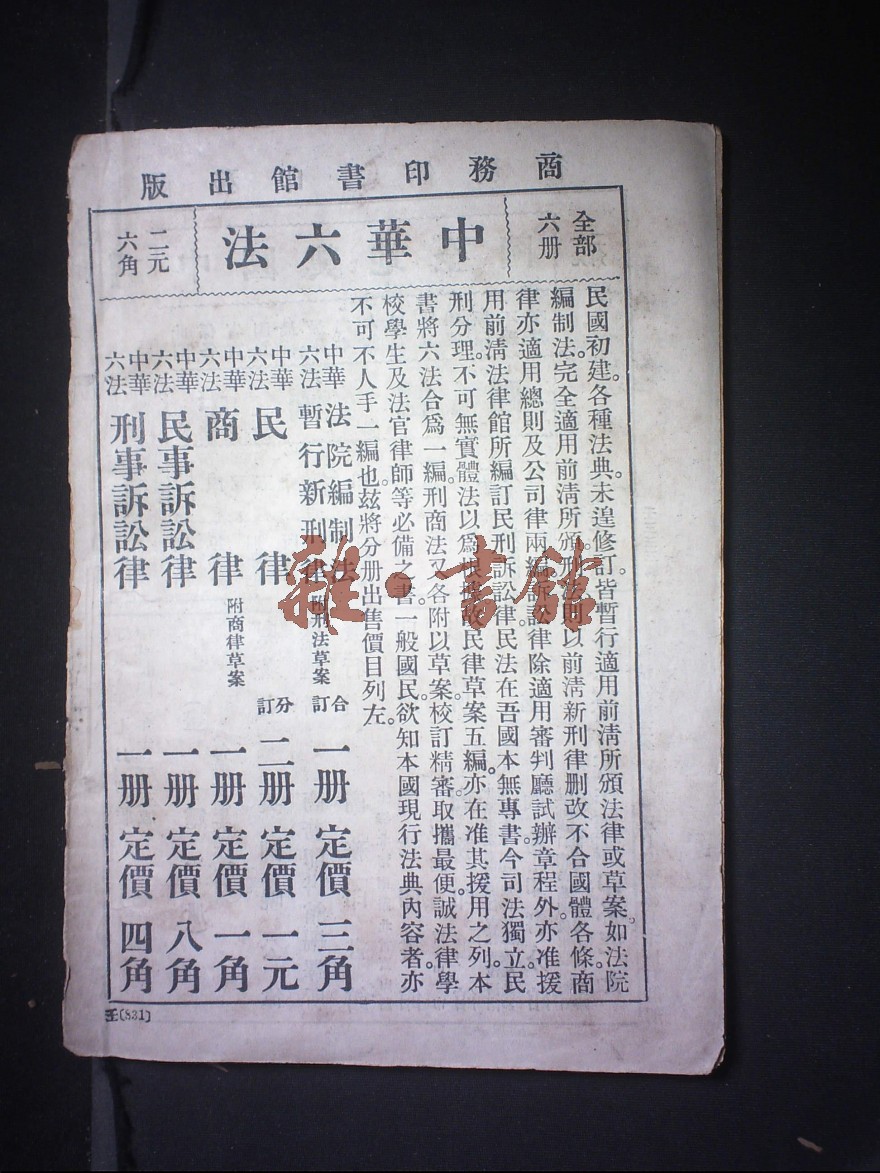 商務印書館出版
全部
六册
中華六法
二元
六角
民國初建。各種法典。未遑修訂。皆暫行適用前淸所頒法律或草案。如法院
編制法。完全適用前淸所頒。刑法則以前淸新刑律删改不合國體各條。商
律亦適用總則及公司律兩編。訴訟律除適用審判廳試辦章程外。亦准援
用前淸法律館所編訂民刑訴訟律。民法在吾國本無專書。今司法獨立。民
刑分理。不可無實體法以爲根據。故民律草案五編。亦在准其援用之列。本
書將六法合爲一編。刑商法又各附以草案。校訂精審。取攜最便。誠法律學
校學生及法官律師等必備之書。一般國民。欲知本國現行法典內容者。亦
不可不人手一編也。茲將分册出售價目列左。
中華六法 法院編制法 暫行新刑律 附刑法草案 合訂 一册 定價 三角
中華六法 民律 分訂 二册 定價 一元
中華六法 商律 附商律草案 一册 定價 一角
中華六法 民事訴訟律 一册 定價 八角
中華六法 刑事訴訟律 一册 定價 四角
壬(831)
雜·書館